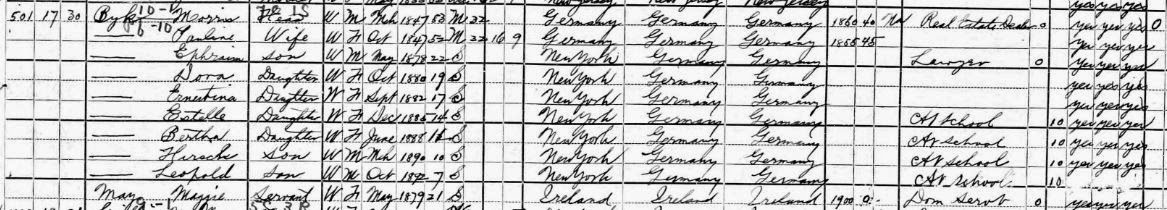 New Jersey New Jersey New Jersey yes yes yes
501 17 30 Morris Head W M Mch 1847 53 M 22 Germany Germany Germany 1860 40 Na Real Estate Dealer 0 yes yes yes 0
— Pauline Wife W F Oct 1847 52 M 22 16 9 Germany Germany Germany 1855 45 yes yes yes
— Ephraim son W M May 1878 22 S New York Germany Germany Lawyer 0 yes yes yes
— Dora Daughter W F Oct 1880 19 S New York Germany Germany yes yes yes
— Ernestina Daughter W F Sept 1882 17 S New York Germany Germany yes yes yes
— Estelle Daughter W F Dec 1885 14 S New York Germany Germany At School 10 yes yes yes
— Bertha Daughter W F June 1888 S New York Germany Germany At School 10 yes yes yes
— Hirsch son W M Mch 1890 10 S New York Germany Germany At School 10 yes yes yes
— Leopold Son W M Oct 1892 7 S New York Germany Germany At School 10
May Maggie Servant W F May 1879 21 S Ireland Ireland Ireland 1900 0 Dom Serv 0 yes yes yes